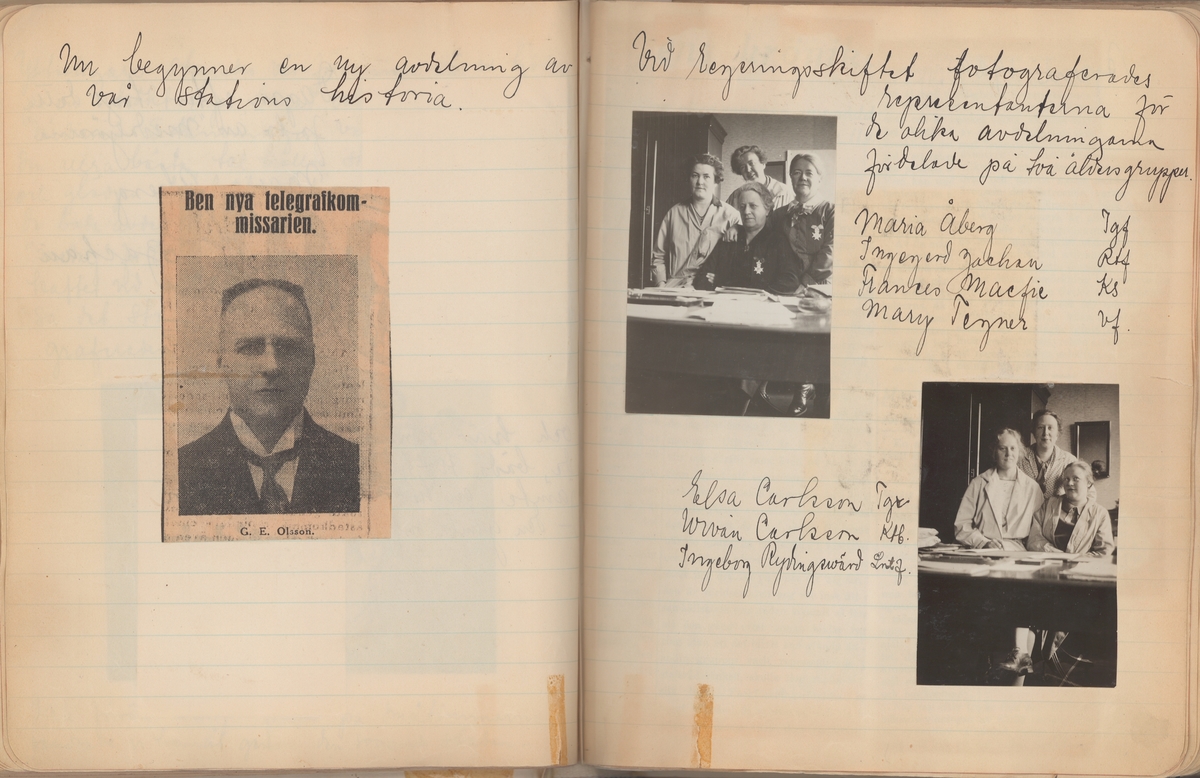 Nu begynner en ny avdelning av
vår stations historia.
Ben nya telegrafkom-
missarien.
G. E. Olsson.
Vid Regeringsskiftet fotograferades
representanterna för
de olika avdelningarna
fördelade på två åldersgrupper.
Maria Åberg Tgf
Ingegerd Zachau Rtf
Frances Macfie Ks
Mary Tegner Vf.
Elsa Carlsson Tgx
Vivan Carlsson Rtf.
Ingeborg Rydingsvärd